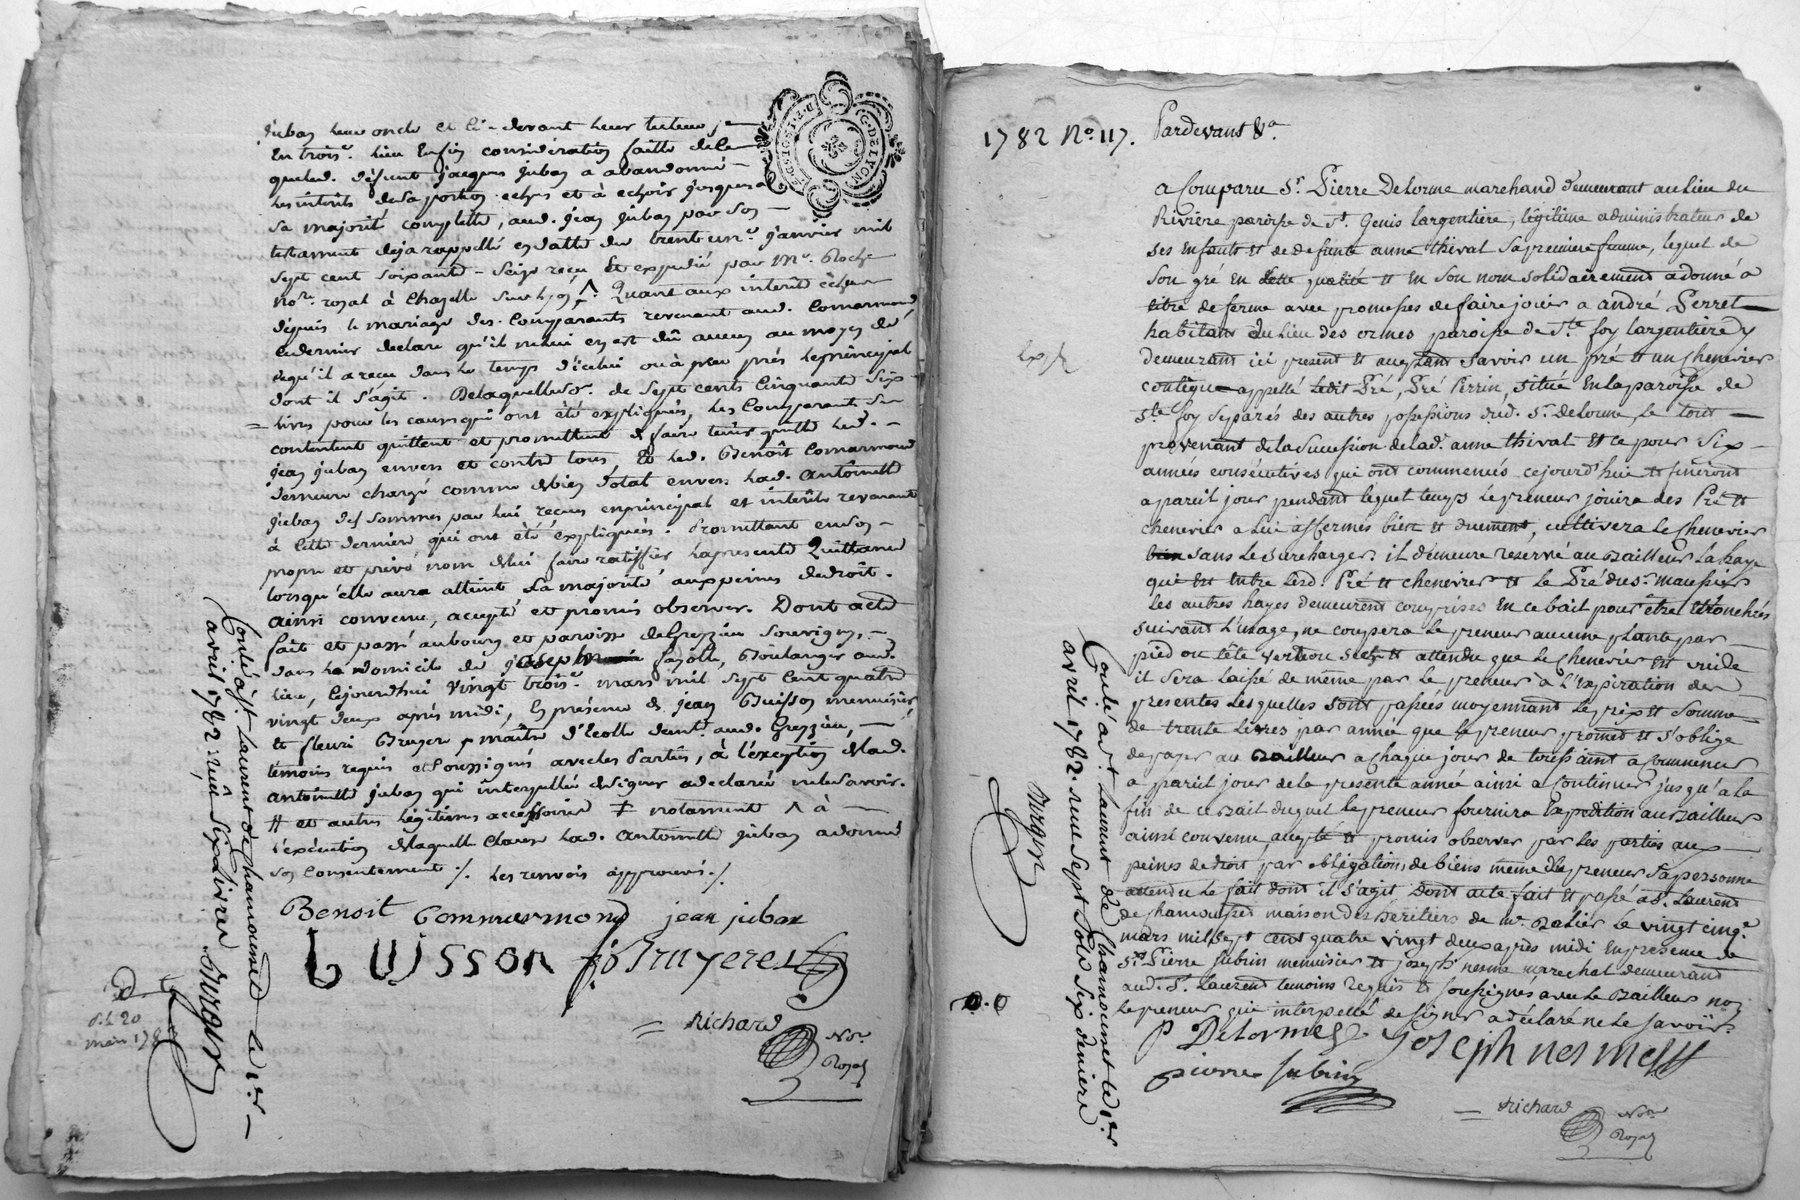 jubaz leur oncle et ci-devant leur tuteur je
En trois.e lieu Enfin consideration faitte de ce
que led. défunt jacques jubaz a abandonné
les intérêts de sa portion echus et à echoir jusques a
sa majorité complette, aud. jean jubaz par son
testament déja rappellé en datte du trente un.e janvier mil
sept cent soixante-seize reçu et expedié par M.e Roche
no.re royal à Chazelle sur Lyon. Quant aux interêts échus
depuis le mariage des Comparants revenant aud. Comarmond
ce dernier declare qu'il ne lui en est dû aucun au moyen de
ce qu'il a reçu dans le temps d'icelui ou à peu prés le principal
dont il s'agit. De laquelle so.e de sept cents Cinquante six
livres pour les causes qui ont été expliqués, les Comparants se
contentent quittent et promettent de faire tenir quitte led.
jean jubaz envers et contre tous, Et led. Benoît Comarmond
demeure chargé comme de bien dotal envers lad. Antoinette
jubaz des sommes par lui reçues en principal et intérêts revenants
à cette derniere qui ont été expliqués. Promettant en son
propre et privé nom de lui faire ratiffier la presente Quittance
lorsqu'elle aura atteint sa majorité aux peines de droit.
ainsi convenu, accepté et promis observer. Dont acte
fait et passé au bourg et paroisse de Grezieu Souvigny,
dans le domicile de joseph fayolle, Boulanger aud.
lieu, Cejourd'hui vingt trois.e mars mil sept cent quatre
vingt deux après midi, En présence de jean Buisson menuisier
et fleuri Bruyere maitre d'Ecolle dem.t aud. Grezzieu,
témoins requis et soussignés avec les Parties, à l'éxception de lad.
antoinette jubaz qui interpellée de signer a declaré ne le savoir.
# et autres légitimes accessoires ‡ notamment ^ à
l'éxécution de laquelle Clause lad. Antoinette jubaz a donné
son Consentement ./. les renvois approuvés ./.
Benoit Commarmond jean jubaz
buisson f. Bruyere
Richard No.re Royal
Contrôlé à S.t Laurent de Chamousset le 1.er
avril 1782. reçu Six Livres Burgur
1782 No. 117. Pardevant &.a
a Comparu S.r Pierre Delorme marchand demeurant au lieu du
Riviere paroisse de S.t Genis largentiere, légitime administrateur de
ses enfants et de defunte anne thivat sa premiere femme, lequel de
son gré en cette qualité et en son nom solidairement a donné à
titre de ferme avec promesses de faire jouir a andré Perret
habitant du lieu des ormes paroisse de S.te foy largentiere y
demeurant ici present et acceptant savoir un pré et un chenevier
contigue appellé ledit Pré, Pré Perrin, situé en la paroisse de
S.te foy separés des autres possessions dud. S.r delorme, le tout
provenant de la succession de lad. anne thivat et ce pour six
années consécutives qui ont commencés cejourd'hui et finiront
a pareil jour pendant lequel temps le preneur jouira des Pré et
chenevier a lui affermés bien et duement, cultivera le chenevier
sans le surcharger. il demeure reservé au Bailleur la haye
qui est entre lesd. Pré et chenevier et le Pré du S.r maussier
Les autres hayes demeurent comprises en ce bail pour être étronchés
suivant l'usage, ne coupera le preneur aucune plante par
pied ou tête vert ou sec, et attendu que le Chenevier est vuide
il sera laissé de même par le preneur à l'expiration des
presentes lesquelles sont passées moyennant le prix et somme
de trente Livres par année que le preneur promet et s'oblige
de payer au Bailleur a chaque jour de toussaint a commencer
a pareil jour de la presente année ainsi a continuer jusqu'a la
fin de ce Bail duquel le preneur fournira Expédition au Bailleur
ainsi convenu accepté et promis observer par les parties aux
peines de droit par obligation de biens même le preneur sa personne
attendu le fait dont il s'agit Dont acte fait et passé a S.t Laurent
de Chamousset maison des héritiers de m.e Balier le vingt cinq.e
mars mil sept cent quatre vingt deux après midi En presence de
S.rs Pierre Jubin menuisier et joseph nesme marechal demeurant
aud. S.t Laurent temoins requis et soussignés avec le Bailleur non
le preneur qui interpellé de signer a déclaré ne le savoir.
P Delorme Joseph nesme
pierre Jubin
Richard No.re Royal
Contrôlé à S.t Laurent de Chamousset le 1.er
avril 1782. reçu sept sols six deniers
Burgur